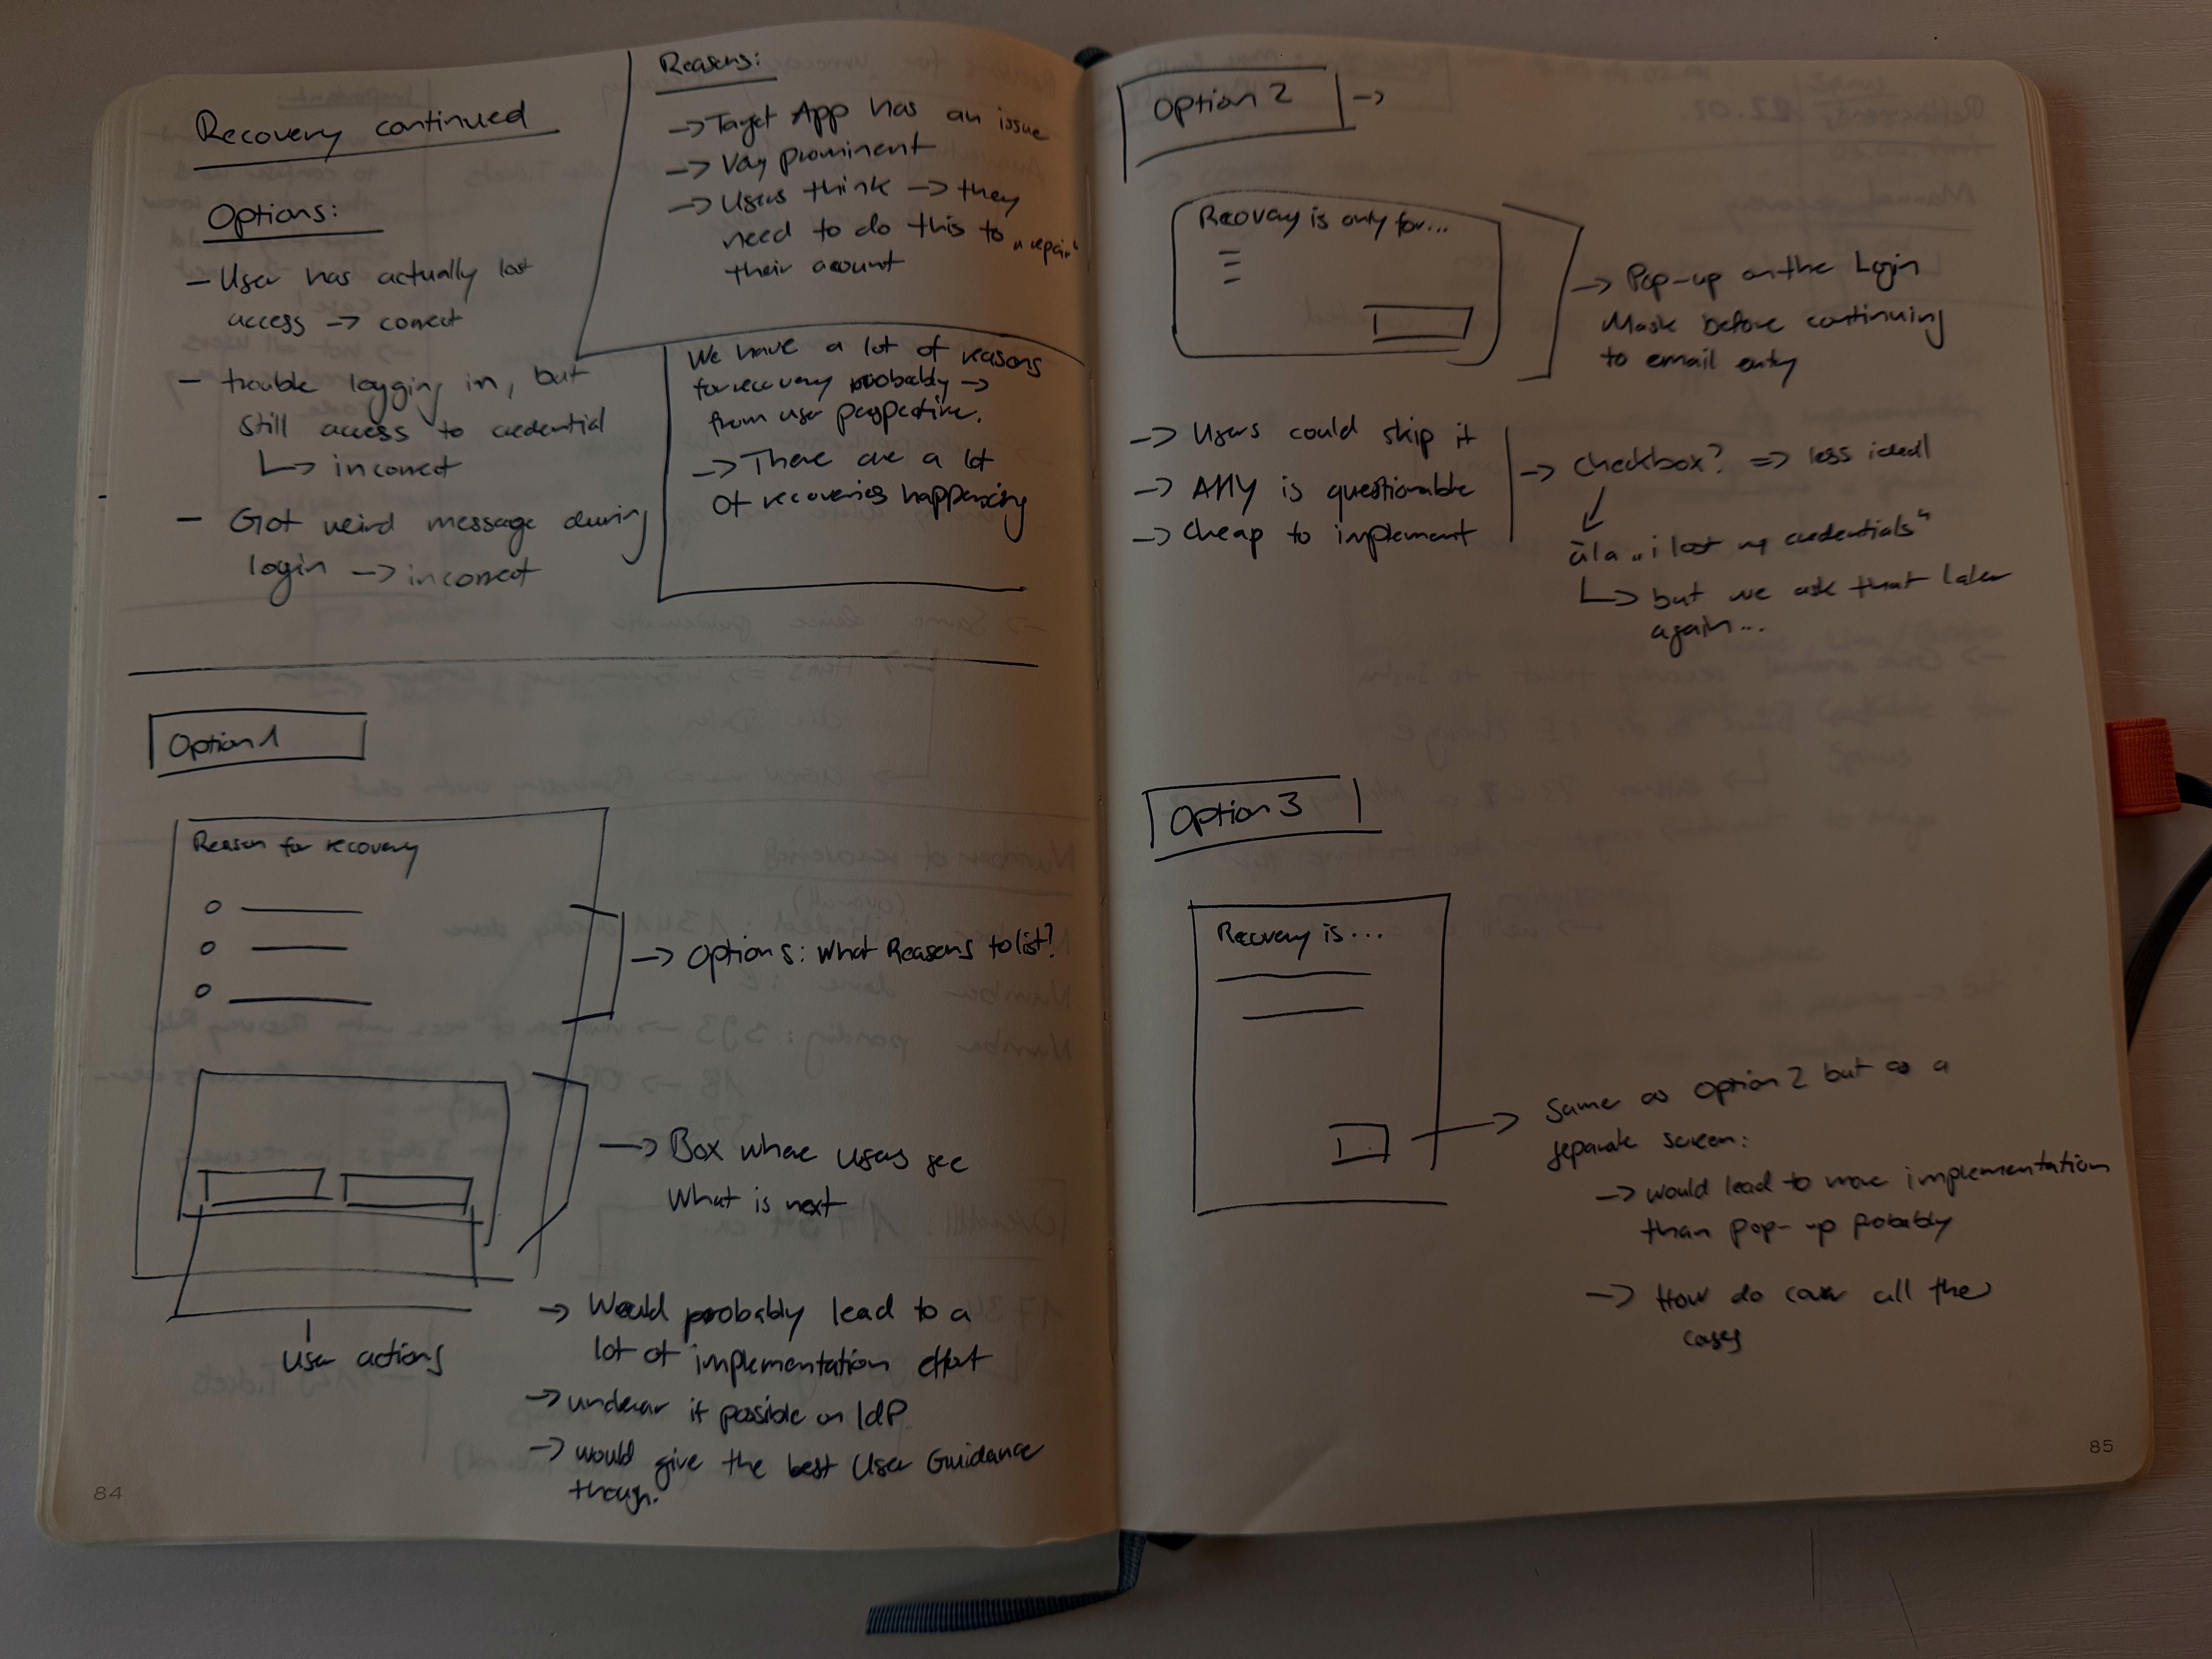 Recovery continued
Options:
- User has actually lost
access -> correct
- trouble logging in, but
still access to credential
↳ incorrect
- Got weird message during
login -> incorrect
Reasons:
-> Target App has an issue
-> Very prominent
-> Users think -> they
need to do this to „repair“
their account
We have a lot of reasons
for recovery probably ->
from user perspective.
-> There are a lot
of recoveries happening
Option 1
Reason for recovery
-> Options: What Reasons to list?
-> Box where users see
What is next
User actions
-> Would probably lead to a
lot of implementation effort
-> unclear if possible on IdP
-> would give the best User Guidance
though.
84
Option 2 ->
Recovery is only for...
-> Pop-up on the Login
Mask before continuing
to email entry
-> Users could skip it
-> A11Y is questionable
-> Cheap to implement
-> Checkbox? => less ideal
àla „i lost my credentials“
↳ but we ask that later
again...
Option 3
Recovery is...
Same as option 2 but as a
separate screen:
-> would lead to more implementation
than pop-up probably
-> How do cover all the
cases
85